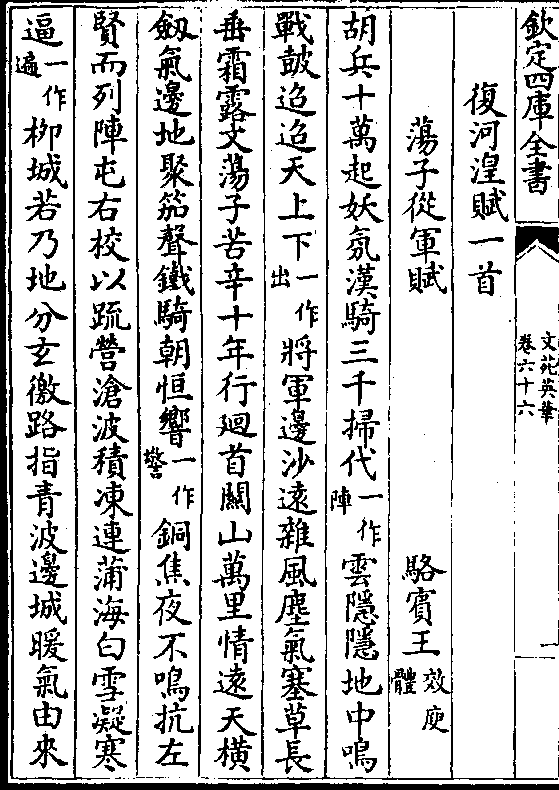 欽定四庫全書
文苑英華
卷六十六
一
復河湟賦一首
蕩子從軍賦 駱賓王 效庾體
胡兵十萬起妖氛漢騎三千掃代一作陣雲隱隱地中鳴
戰鼓迢迢天上下一作出將軍邊沙遠雜風塵氣塞草長
垂霜露文蕩子苦辛十年行廻首關山萬里情遠天橫
劔氣邊地聚笳聲鐵騎朝恒響一作警銅焦夜不鳴抗左
賢而列陣屯右校以疏營滄波積凍連蒲海白雪凝寒
逼一作遍柳城若乃地分玄徼路指青波邊城暖氣由來